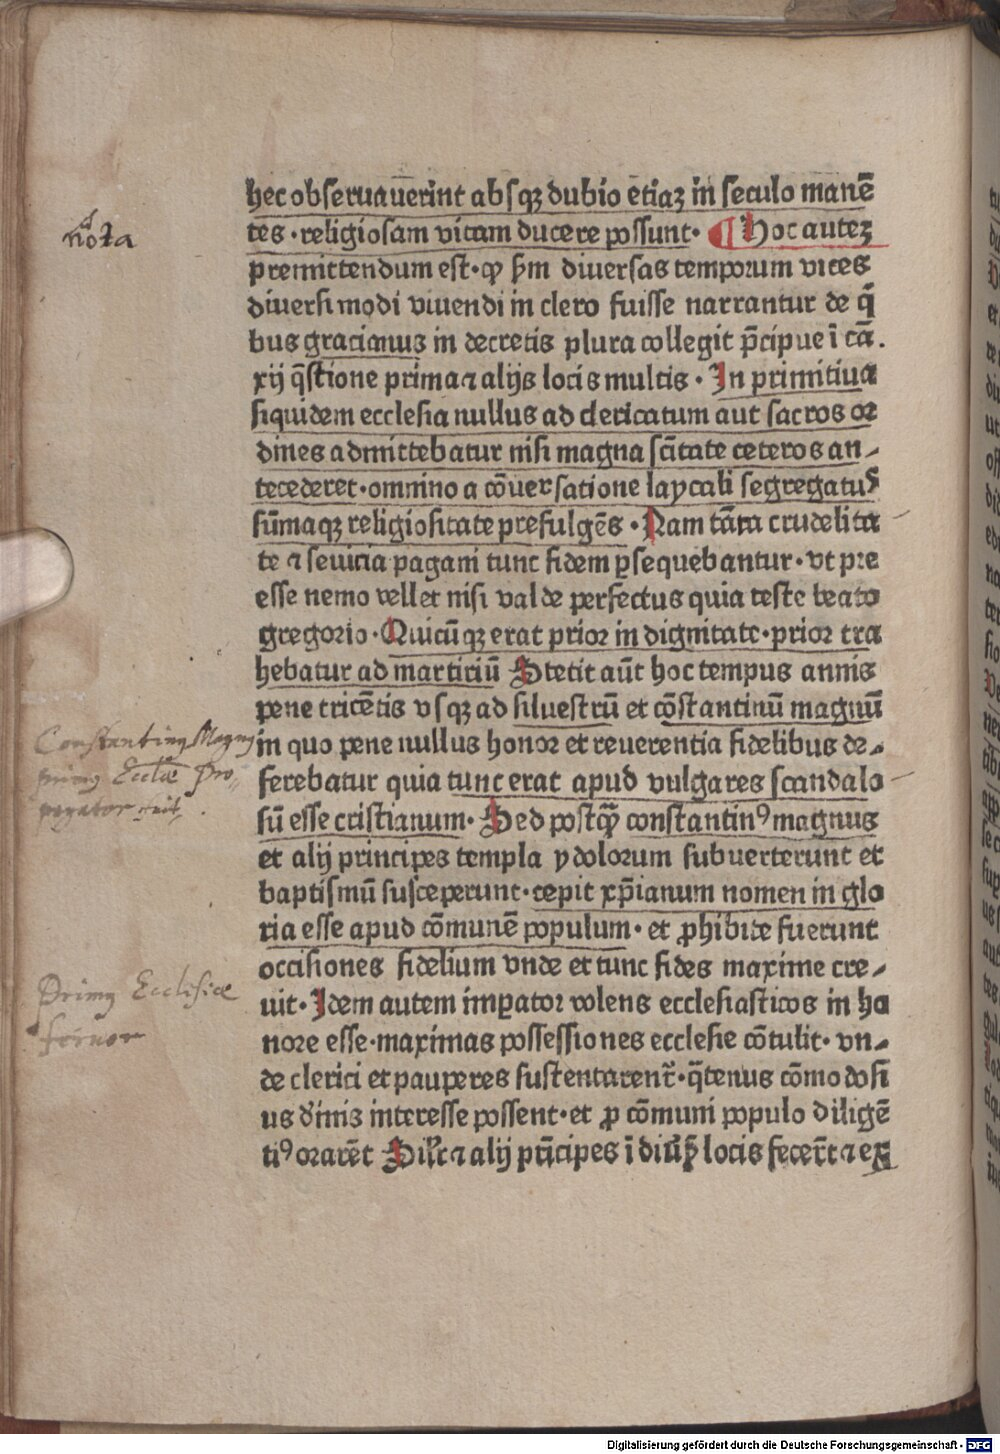 hec obseruauerint absqꝫ dubio etiaꝫ in seculo manē
tes · religiosam vitam ducere possunt · ¶ Hoc auteꝫ
premittendum est · ꝙ ẜm diuersas temporum vices
diuersi modi viuendi in clero fuisse narrantur de q̄
bus gracianus in decretis plura collegit p̄cipue ī cā .
xij q̄stione prima ⁊ alijs locis multis · In primitiua
siquidem ecclesia nullus ad clericatum aut sacros or
dines admittebatur nisi magna sc̄itate ceteros an-
tecederet · omnino a cōuersatione laycali segregatus
sūmaqꝫ religiositate prefulgēs · Nam tāta crudelita
te ⁊ seuicia pagani tunc fidem ꝑsequebantur · vt pre
esse nemo vellet nisi valde perfectus quia teste beato
gregorio · Quicūqꝫ erat prior in dignitate · prior tra
hebatur ad martiriū Stetit aūt hoc tempus annis
pene tricētis vsqꝫ ad siluestrū et cōstantinū magnū
Constantinꝰ Magnꝰ
primꝰ Eccliæ Pro-
pagator fuit .
in quo pene nullus honor et reuerentia fidelibus de-
ferebatur quia tunc erat apud vulgares scandalo
sū esse cristianum · Sed postꝙ̄ constantinꝰ magnus
et alij principes templa ydolorum subuerterunt et
baptismū susceperunt · cepit xp̄ianum nomen in glo
ria esse apud cōmunē populum · et ꝓhibite fuerunt
occisiones fidelium vnde et tunc fides maxime cre-
Primꝰ Ecclesiæ
uit · Idem autem imꝑator volens ecclesiasticos in ho
nore esse · maximas possessiones ecclesie cōtulit · vn-
de clerici et pauperes sustentarent̄ · q̄tenus cōmodosi
us diuinis interesse possent · et ꝓ cōmuni populo diligē
tiꝰ orarēt Silr̄ ⁊ alij pri̅cipes ī diuſꝭ locis fecer̄t ⁊ ex
nota